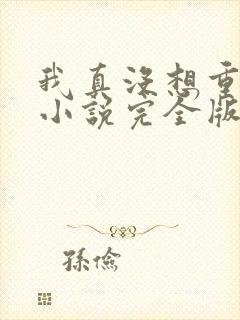 我真没想重
小說完全版
孫儉